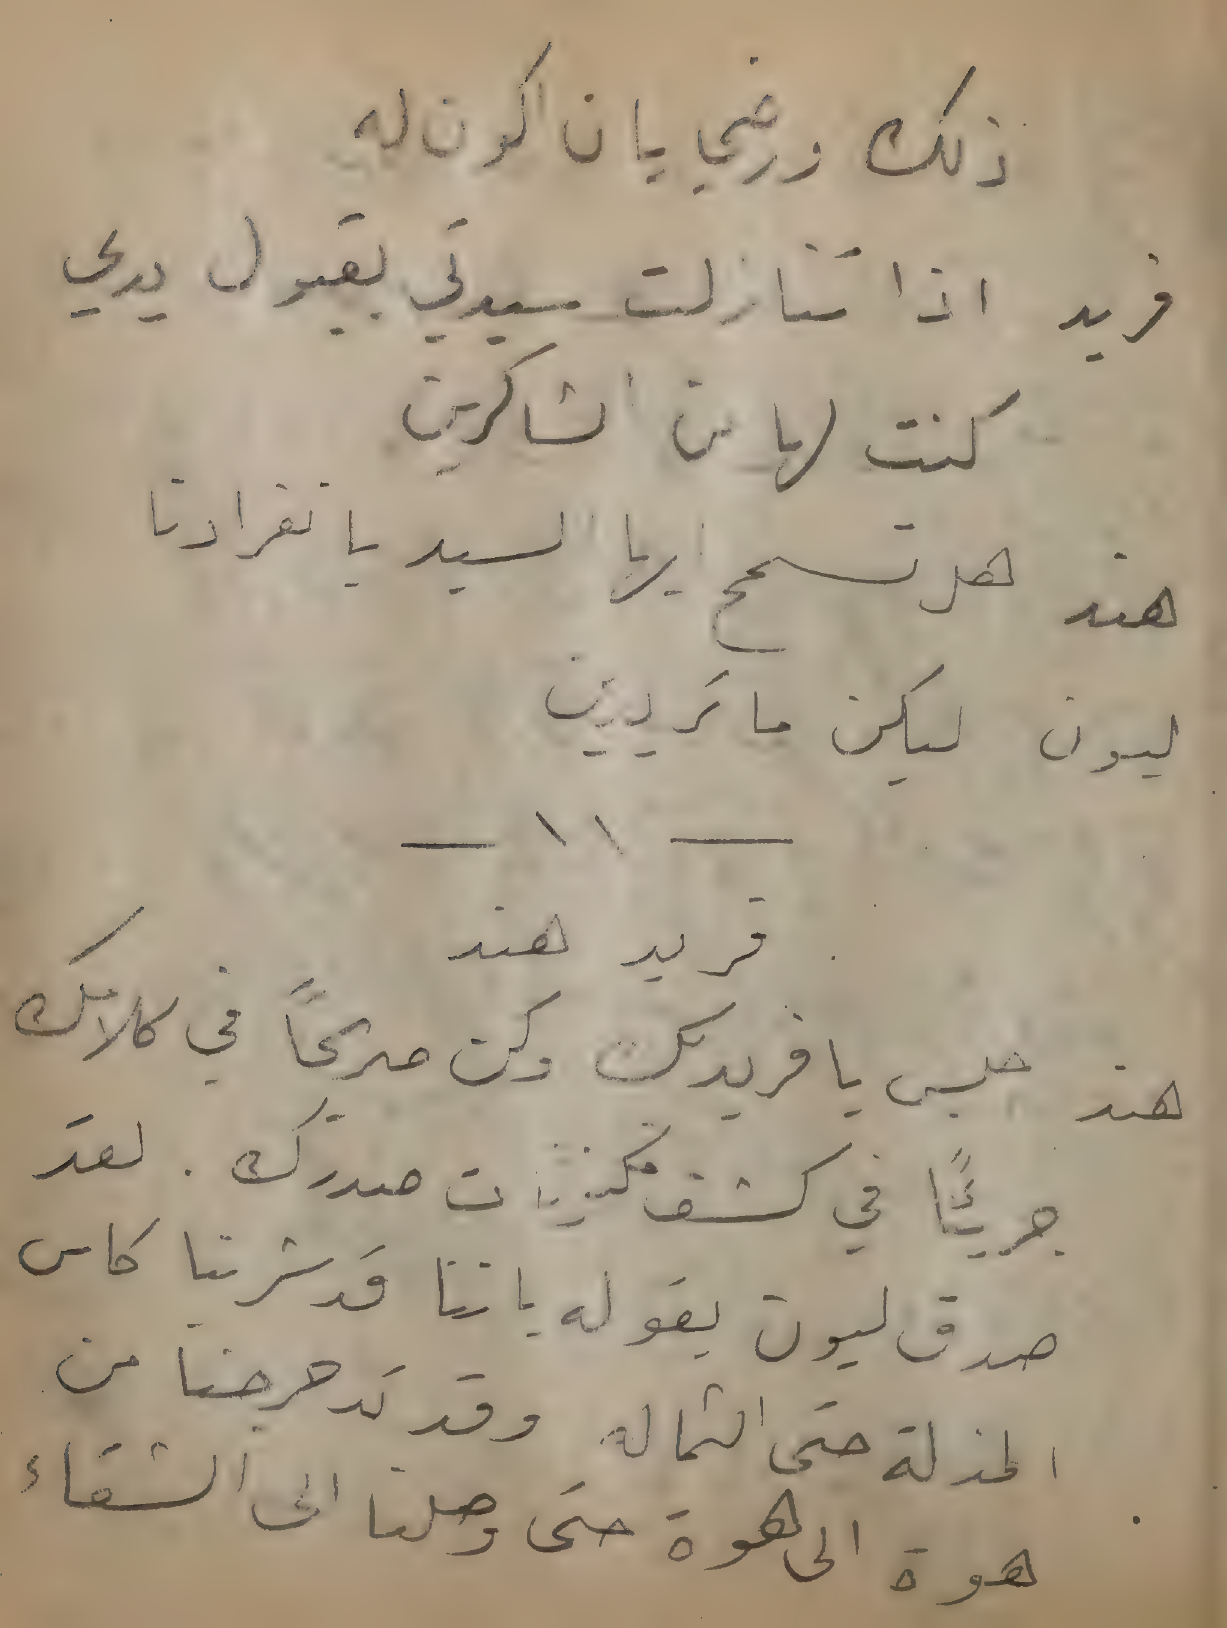 ذلك ورضي بان اكون له
فريد اذا تنازلت سيدتي بقبول يدي
كنت لها من الشاكرين
هند هل تسمح ايها السيد بانفرادنا
ليون ليكن ما تريدين
— ١١ —
فريد هند
هند جلس يا فريدك وكن صريحاً في كلامك
جريئاً في كشف مكنونات صدرك . لقد
صدق ليون بقوله باننا قد شربنا كاس
المذلة حتى الثماله وقد تدحرجنا من
هوة الى هوة حتى وصلنا الى الشقاء